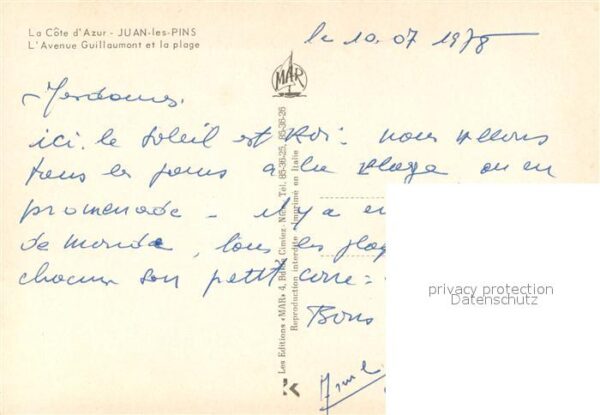 La Côte d'Azur - JUAN-les-PINS
L'Avenue Guillaumont et la plage
le 10.07 1978
MAR
Mesdames,
ici, le soleil est Roi. nous allons
tous les jours à la plage ou en
promenade - il y a en
de monde, tous les plag
chacun son petit coin =
Bons
Les Editions «MAR» 4, Cimiez - Nice - Tél. 85-36-25, 85-36-26
Reproduction interdite - Imprimé en Italie
privacy protection
Datenschutz